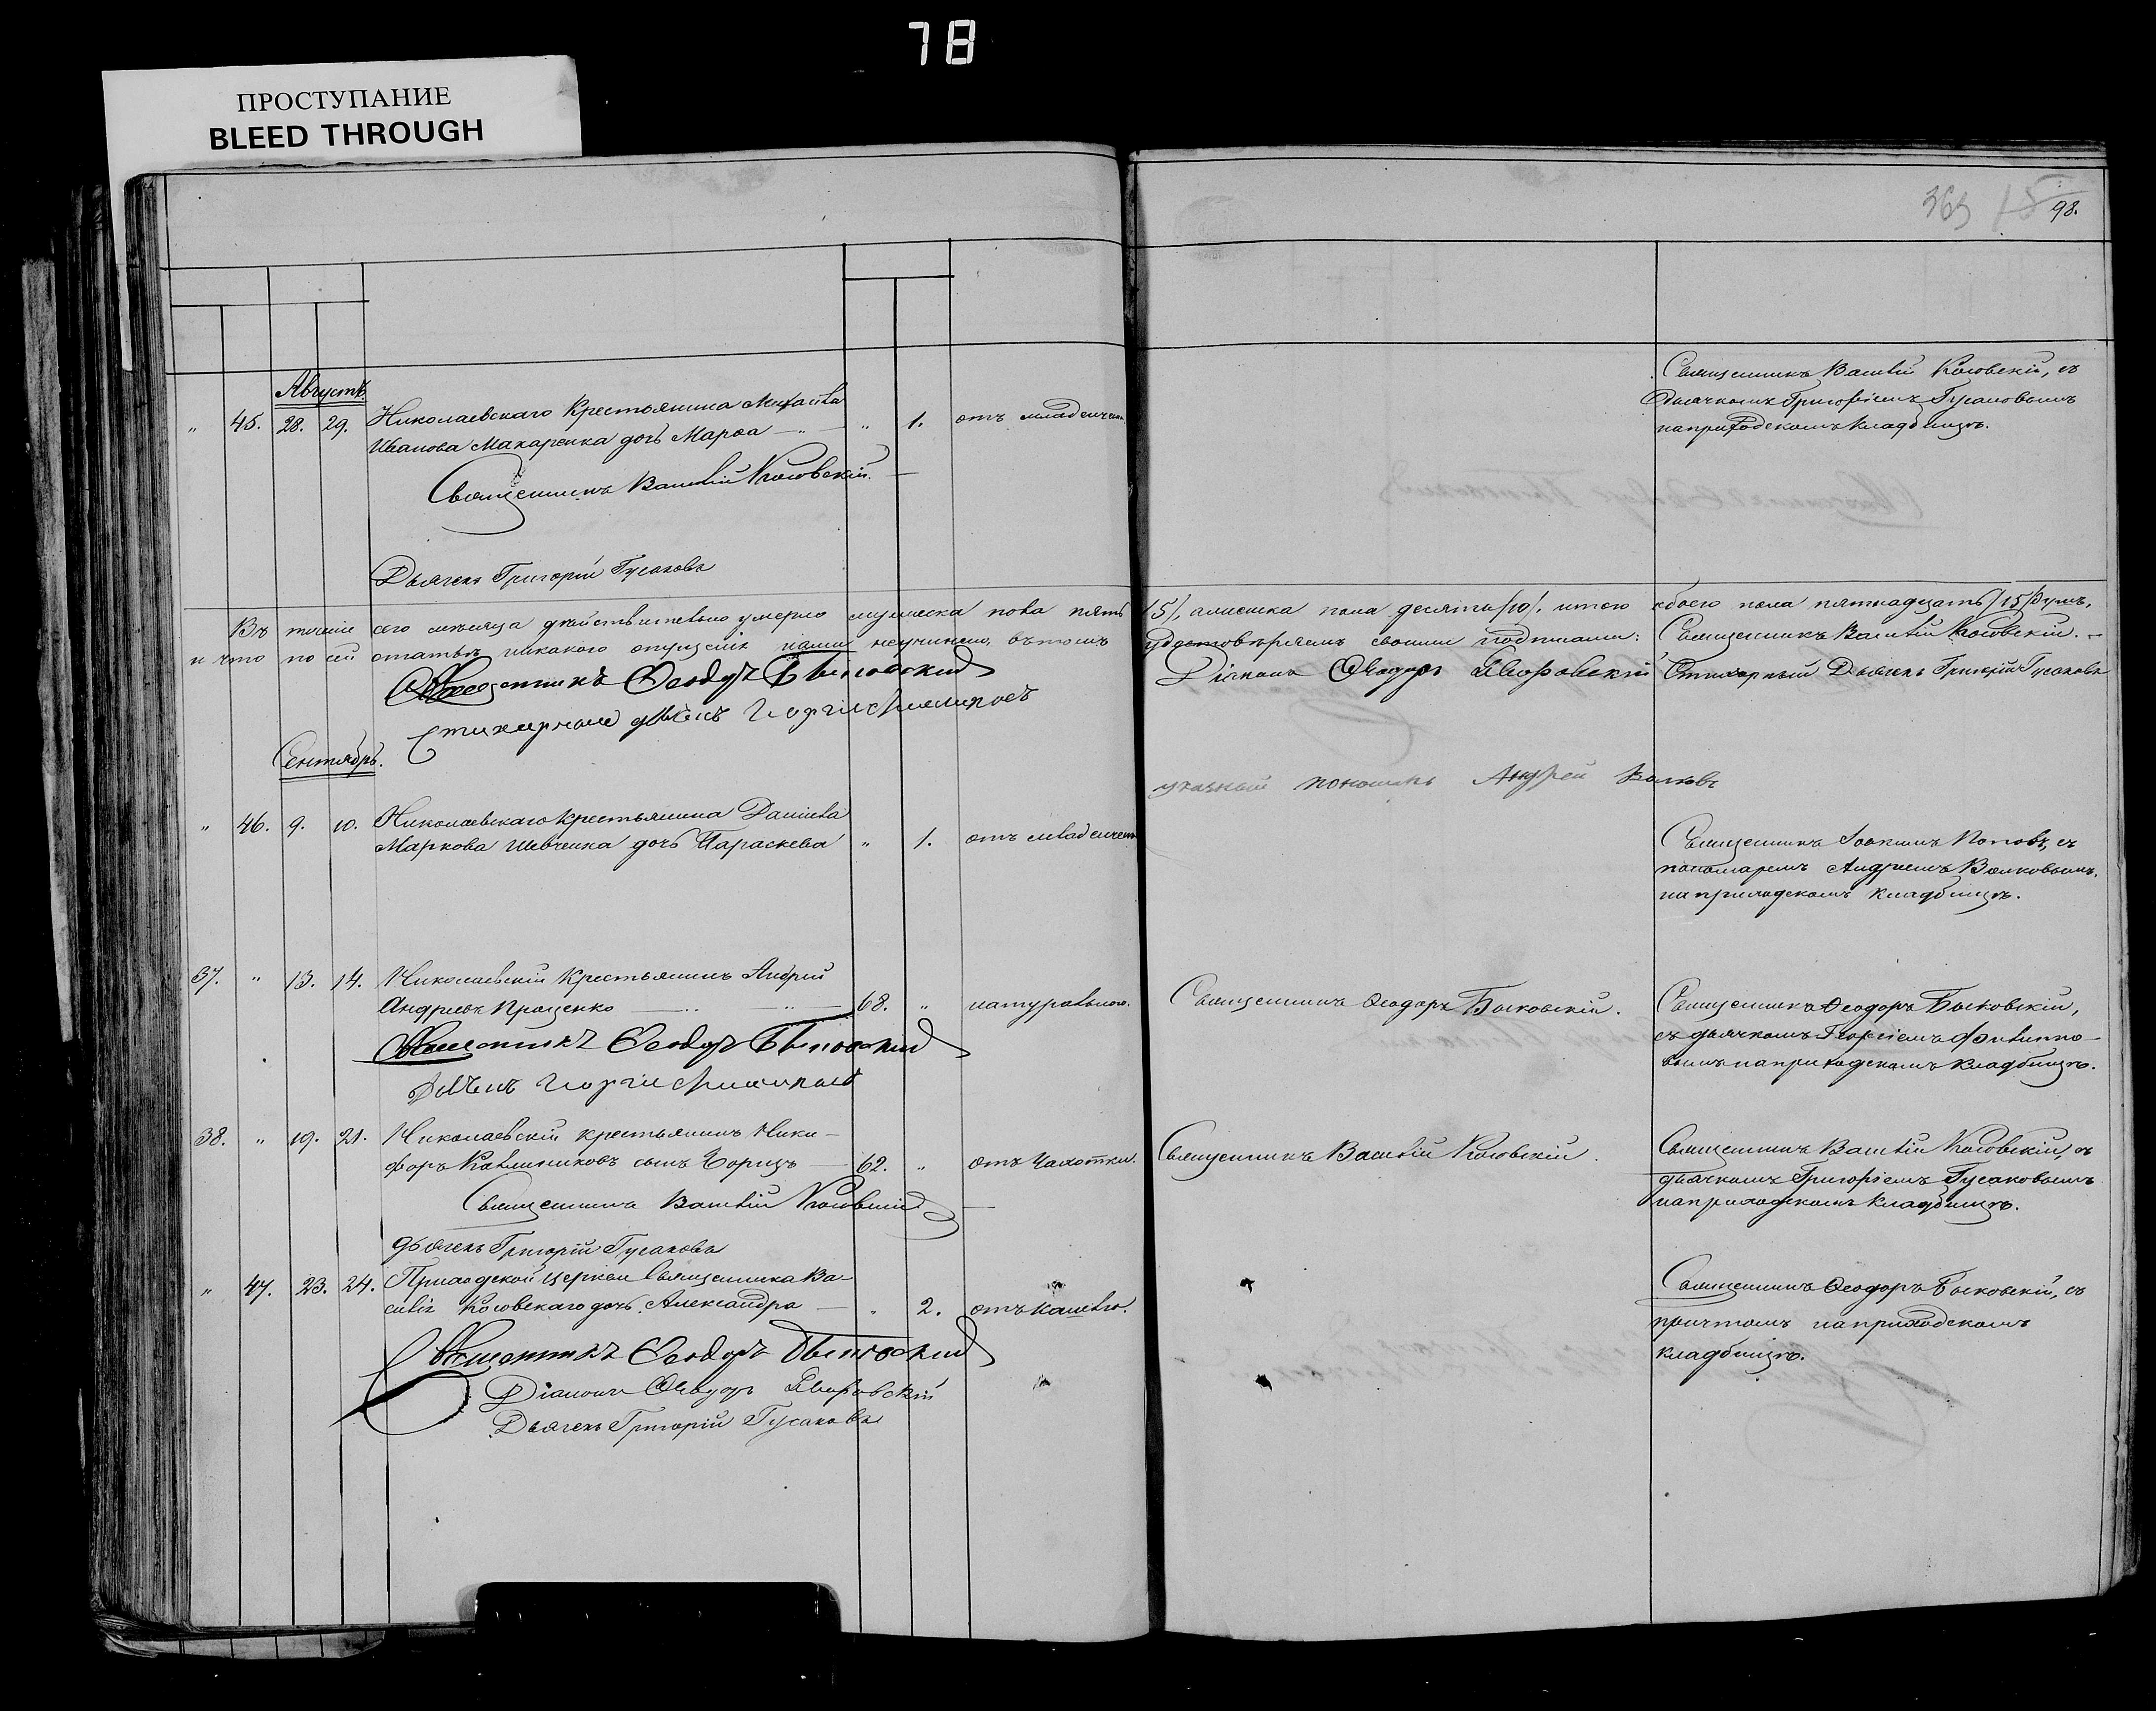 78
ПРОСТУПАНИЕ
BLEED THROUGH
363 15 98.
Августъ
" 45. 28. 29. Николаевскаго Крестьянина Михаила " 1. отъ младенчес.
Иванова Макаренка дочь Марѳа
Священникъ Василій Косовскій.
Священникъ Василій Косовскій, съ
Дьячкомъ Григоріемъ Гусаковымъ
на приходскомъ кладбищѣ.
Дьячекъ Григорій Гусаковъ
Въ теченіе сего мѣсяца дѣйствительно умерло мужеска пола пять /5/, а женска пола десять /10/. итого обоего пола пятнадцать /15/ душъ,
и что по сей статьѣ никакого опущенія нами неучинено, въ томъ удостовѣряемъ своими подписами: Священникъ Василій Косовскій.
Священникъ Ѳеодоръ Быковский Діаконъ Ѳеодоръ Яворовскій Стихарный Дьячекъ Григорій Гусаковъ
Стихарный дьячекъ Георгій Филиповъ
Сентябрь.
указный пономарь Андрей Волковъ
" 46. 9. 10. Николаевскаго Крестьянина Даніила
Маркова Шевченка дочь Параскева " 1. отъ младенчес.
Священникъ Іоакимъ Поповъ, съ
пономаремъ Андреемъ Волковымъ,
на приходскомъ кладбищѣ.
37. " 13. 14. Николаевскій Крестьянинъ Андрей
Андреевъ Проценко 68. " натуральною. Священникъ Ѳеодоръ Быковскій.
Священникъ Ѳеодоръ Быковскій,
съ дьячкомъ Георгіемъ Филиппо-
вымъ на приходскомъ кладбищѣ.
Священникъ Ѳеодоръ Быковский
Дьячекъ Георгій Филиповъ
38. " 19. 21. Николаевскій крестьянинъ Ники-
форъ Калинниковъ сынъ 62. " отъ Чахотки. Священникъ Василій Косовскій.
Священникъ Василій Косовскій, съ
дьячкомъ Григоріемъ Гусаковымъ
на приходскомъ кладбищѣ.
Священникъ Василій Косовскій
дьячекъ Григорій Гусаковъ
" 47. 23. 24. Приходской церкви Священника Ва-
силія Косовскаго дочь Александра " 2. отъ кашлю.
Священникъ Ѳеодоръ Быковскій, съ
причтомъ на приходскомъ
кладбищѣ.
Священникъ Ѳеодоръ Быковский
Діаконъ Ѳеодоръ Яворовскій
Дьячекъ Григорій Гусаковъ